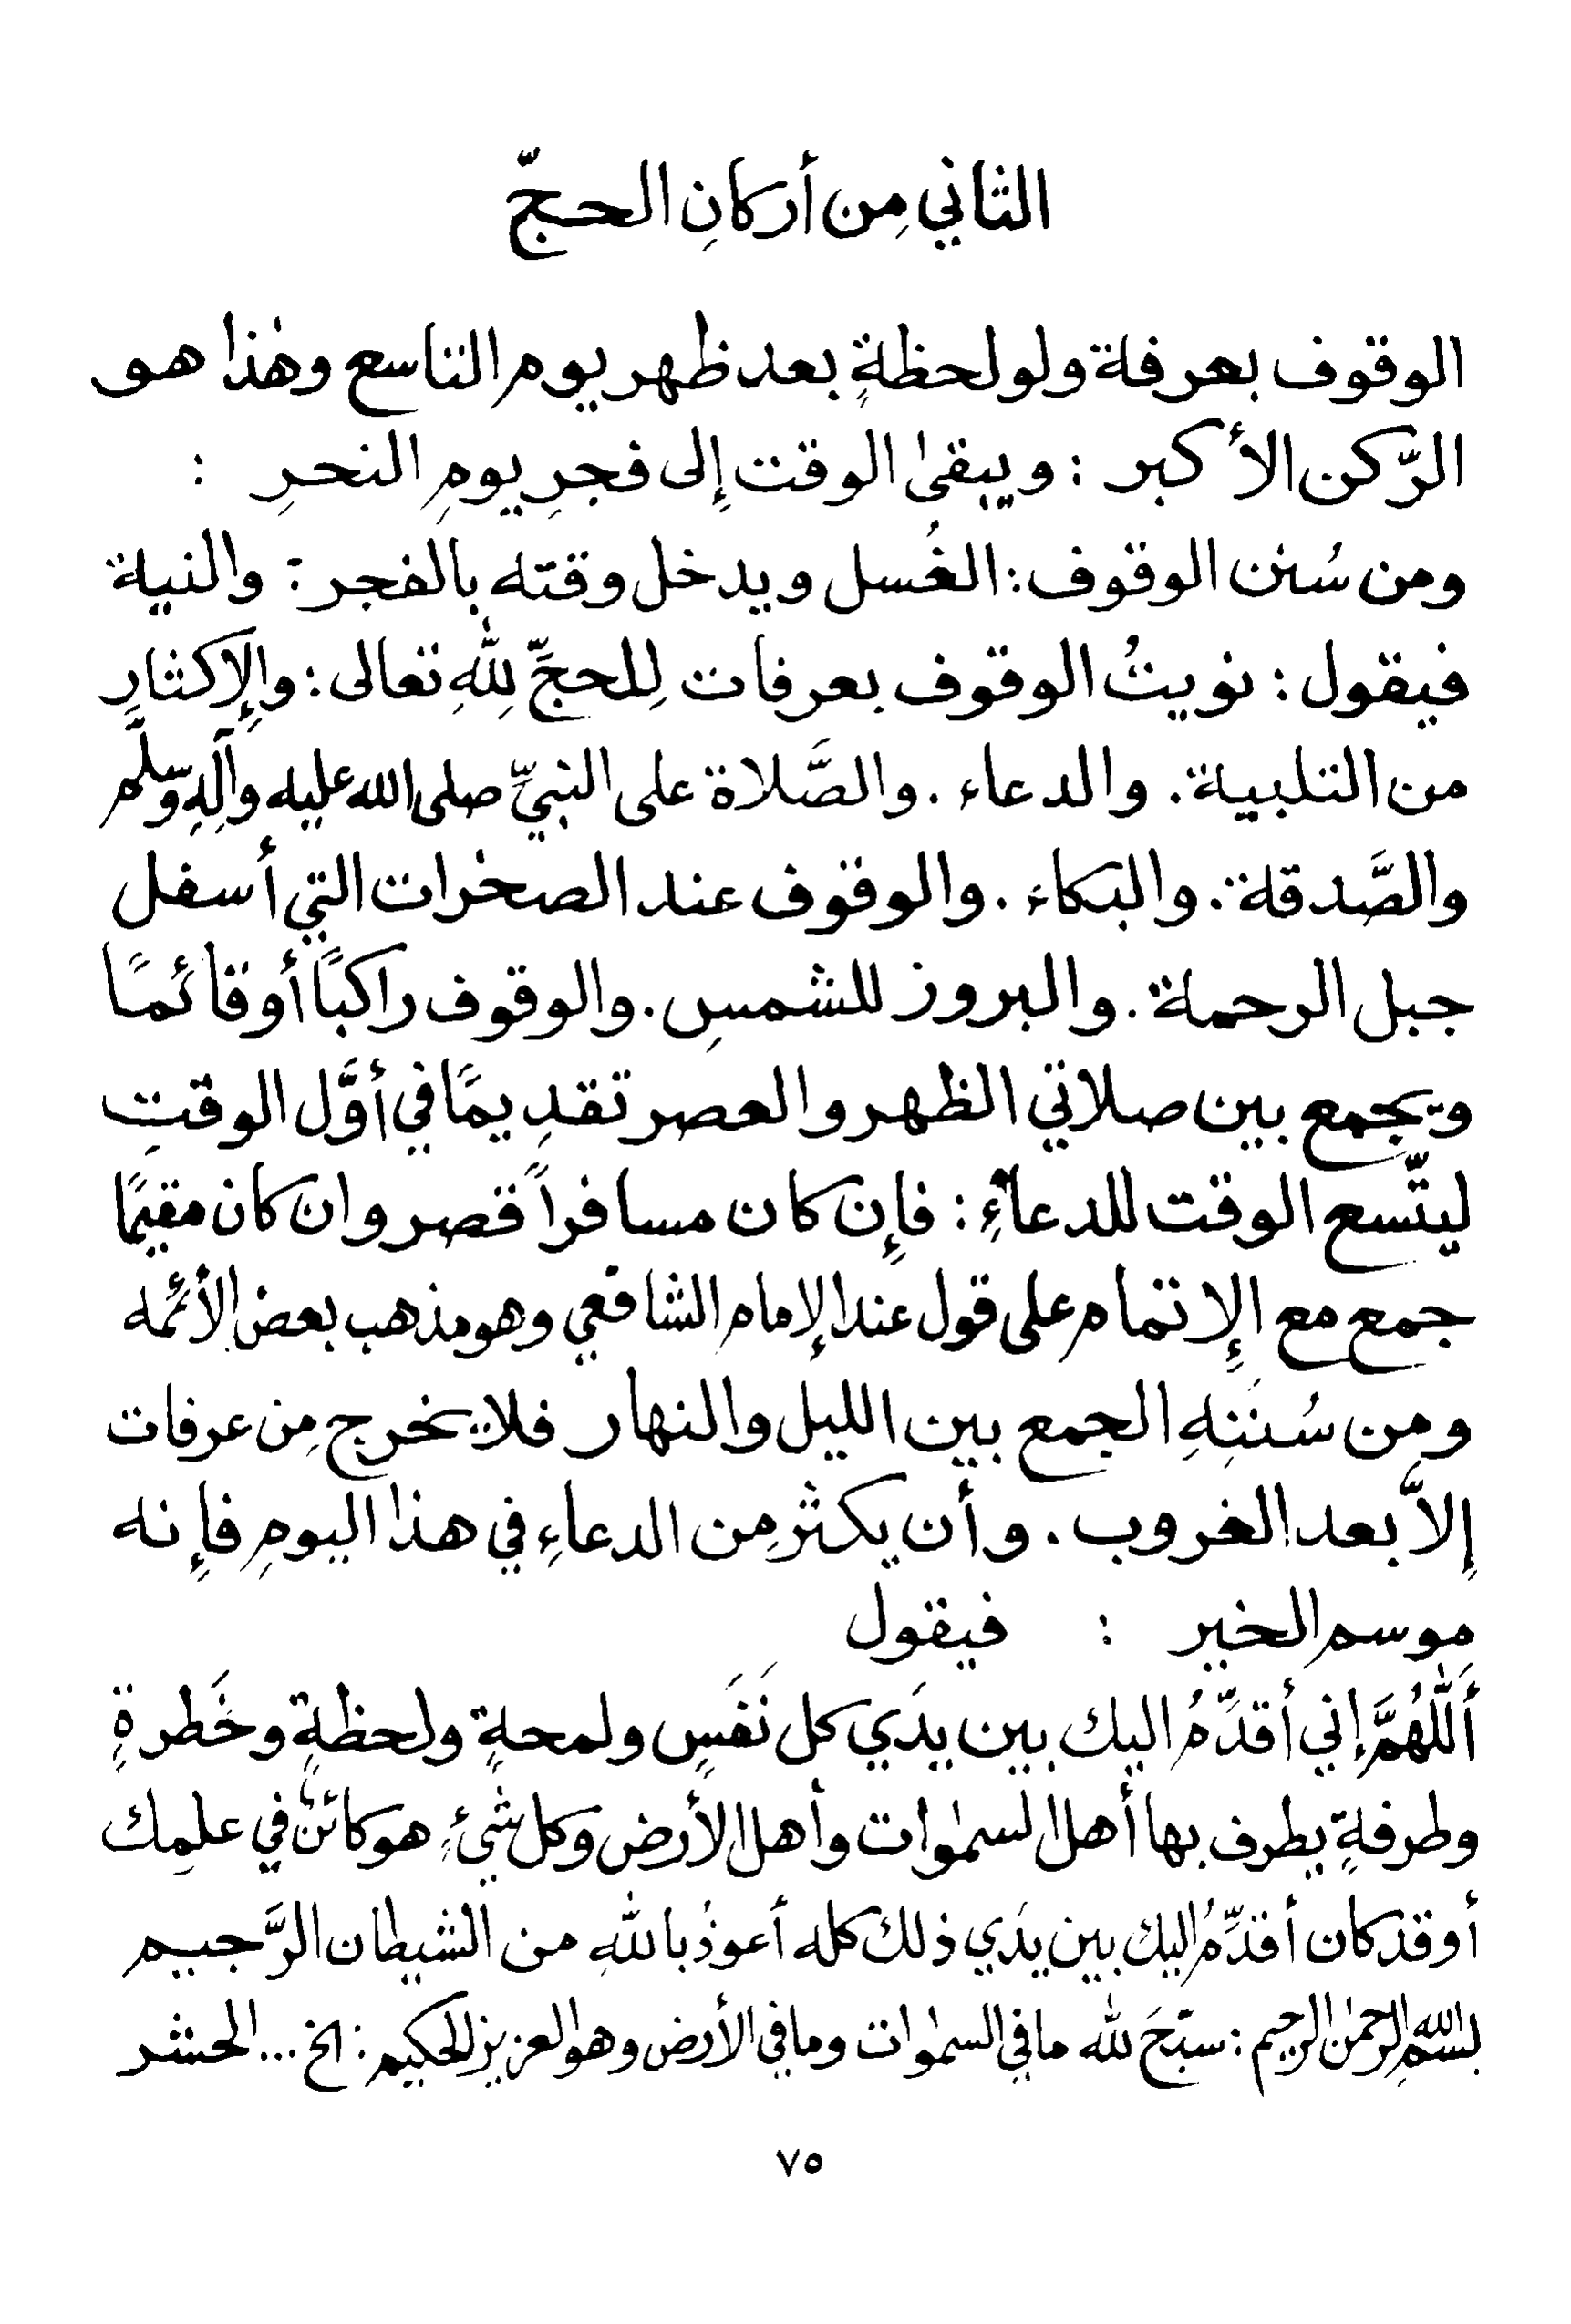 الثاني مِن أركانِ الحجّ
الوقوف بعرفة ولو لحظةٍ بعد ظهر يوم التاسع وهٰذا هو
الرّكن الأكبر : ويبقىٰ الوقت إِلى فجرِ يومِ النحرِ :
ومن سُنن الوقوف : الغُسل ويدخل وقته بالفجر : والنية
فيقول : نويتُ الوقوف بعرفات لِلحجَِّ لِلّٰهِ تعالى : والإِكثارِ
من التلبية . والدعاء . والصَّلاة على النبيِّ صلى الله عليه وآلِهِ وسلَّم
والصَّدقة . والبكاء . والوقوف عند الصخرات التي أسفل
جبل الرحمة . والبروز للشمسِ . والوقوف راكبًا أوقائمًا
ويجمع بين صلاتي الظهر والعصر تقدِيمًا في أوَّل الوقتِ
ليتّسع الوقت للدعاءِ : فإِن كان مسافراً قصر وان كان مقيمًا
جمع مع الإِتمام على قول عند الإمام الشافعي وهو مذهب بعض الأئمه
ومن سُنَنِهِ الجمع بين الليل والنهار فلا يخرج مِن عرفات
إِلاَّ بعد الغروب . وأن يكثر مِن الدعاءِ في هذا اليومِ فإِنه
موسم الخير : فيقول
أَللّٰهُمَّ إني أقدِّمُ اليك بين يدَي كل نَفَسٍ ولمحةٍ ولحظةٍ وخَطرةٍ
وطرفةٍ يطرف بها أهل السمٰوات وأهل الأرض وكل شيءٍ هو كائنٌ في علمِك
أوقدكان أقدِّمُ اليك بين يدَي ذلك كله أعوذُ باللّٰهِ من الشيطان الرَّجيم
بسمِ الله الرحمٰن الرحيم : سبّحَ لله ما في السمٰوات وما في الأرض وهو العزيز الحكيم : الخ ... الحشر
٧٥